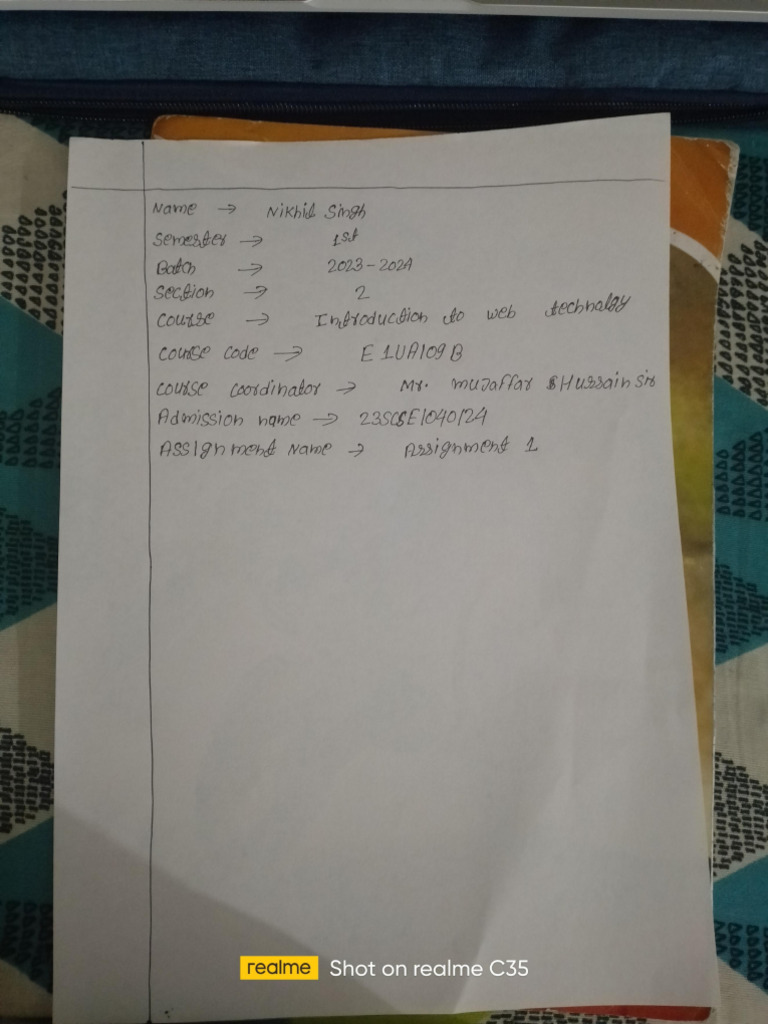 Name → Nikhil Singh
Semester → 1st
Batch → 2023-2024
Section → 2
Course → Introduction to web technolgy
Course code → E1UA109B
Course coordinator → Mr. Muzaffar Hussain Sir
Admission name → 23SCSE1040124
Assignment Name → Assignment 1
realme Shot on realme C35